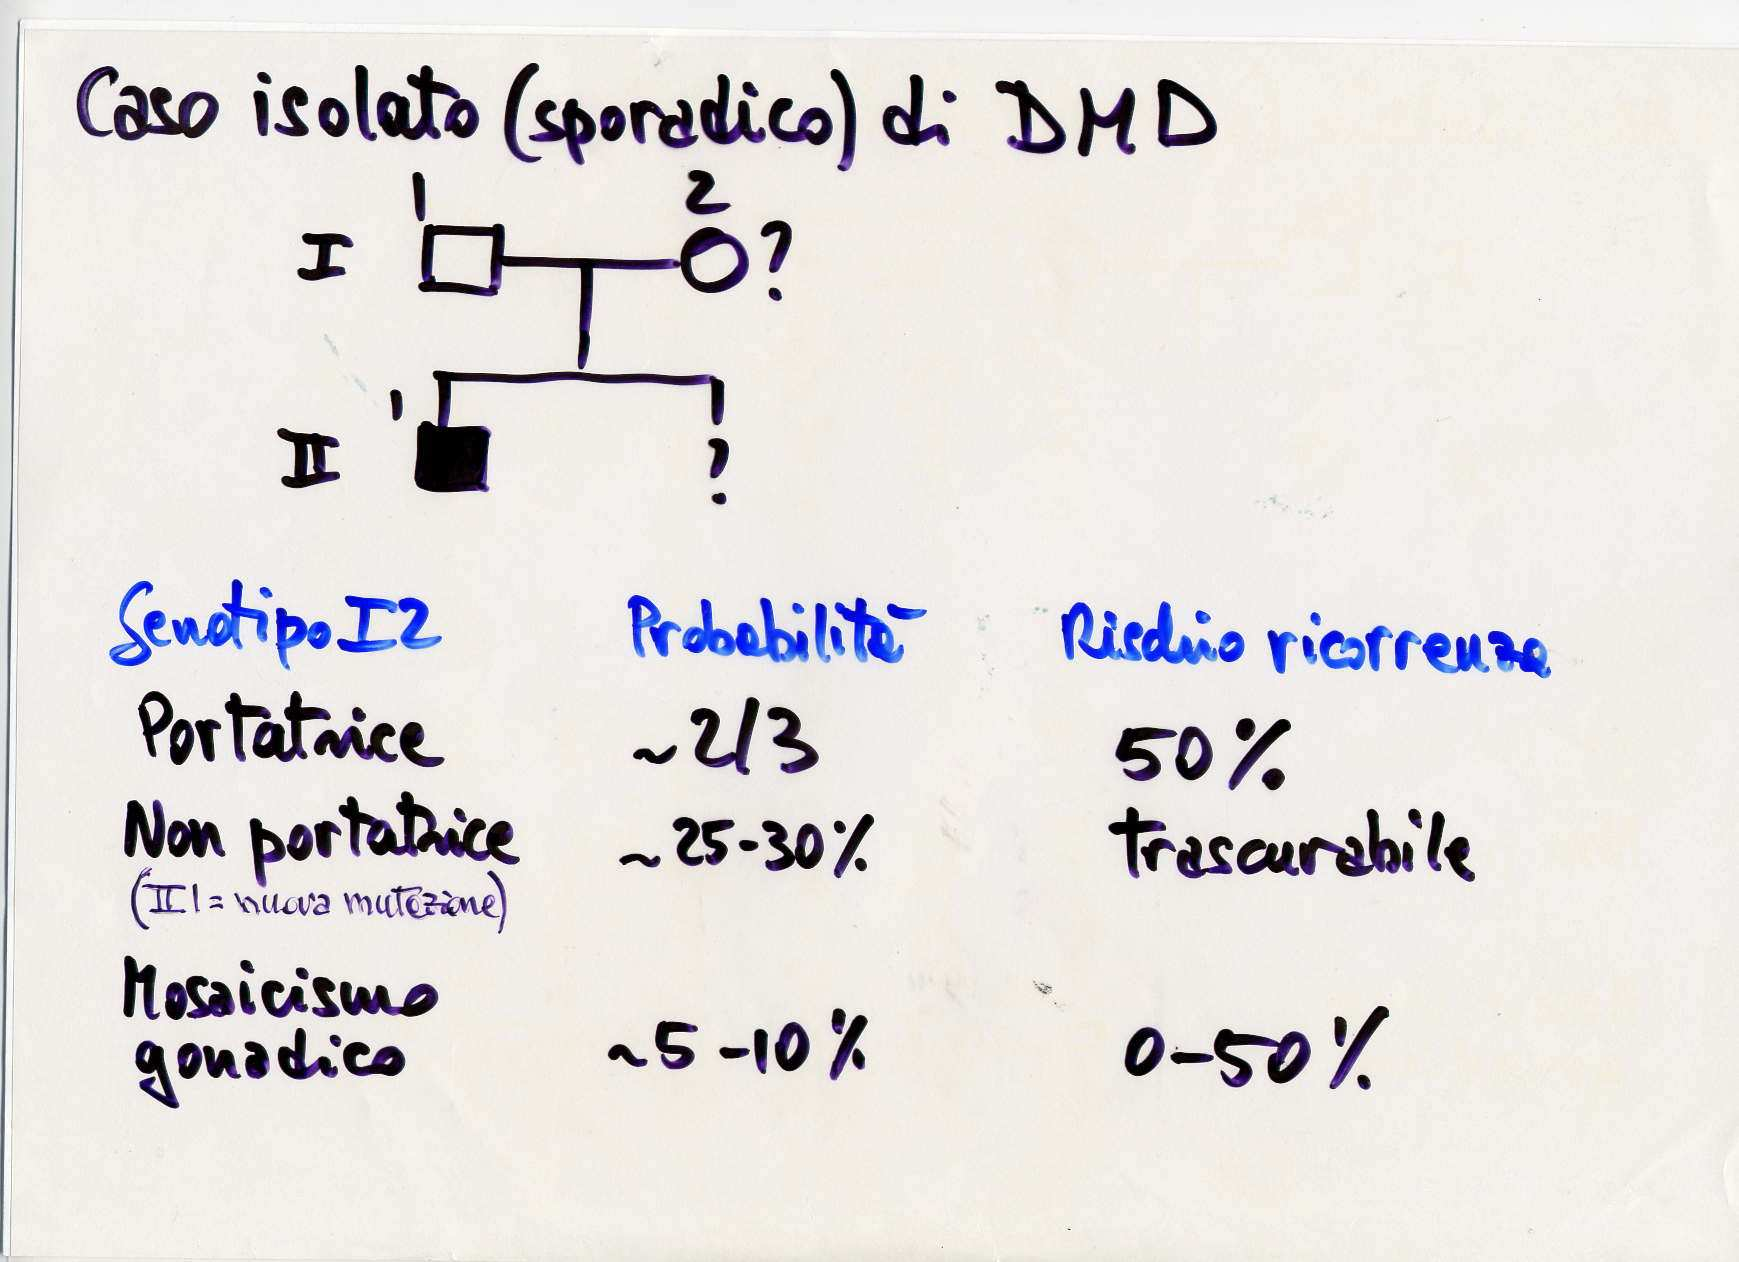 Caso isolato (sporadico) di DMD
1 2
I ?
1
II ?
Genotipo I2 Probabilità Rischio ricorrenza
Portatrice ~2/3 50%
Non portatrice ~25-30% trascurabile
(II1 = nuova mutazione)
Mosaicismo
gonadico ~5-10% 0-50%